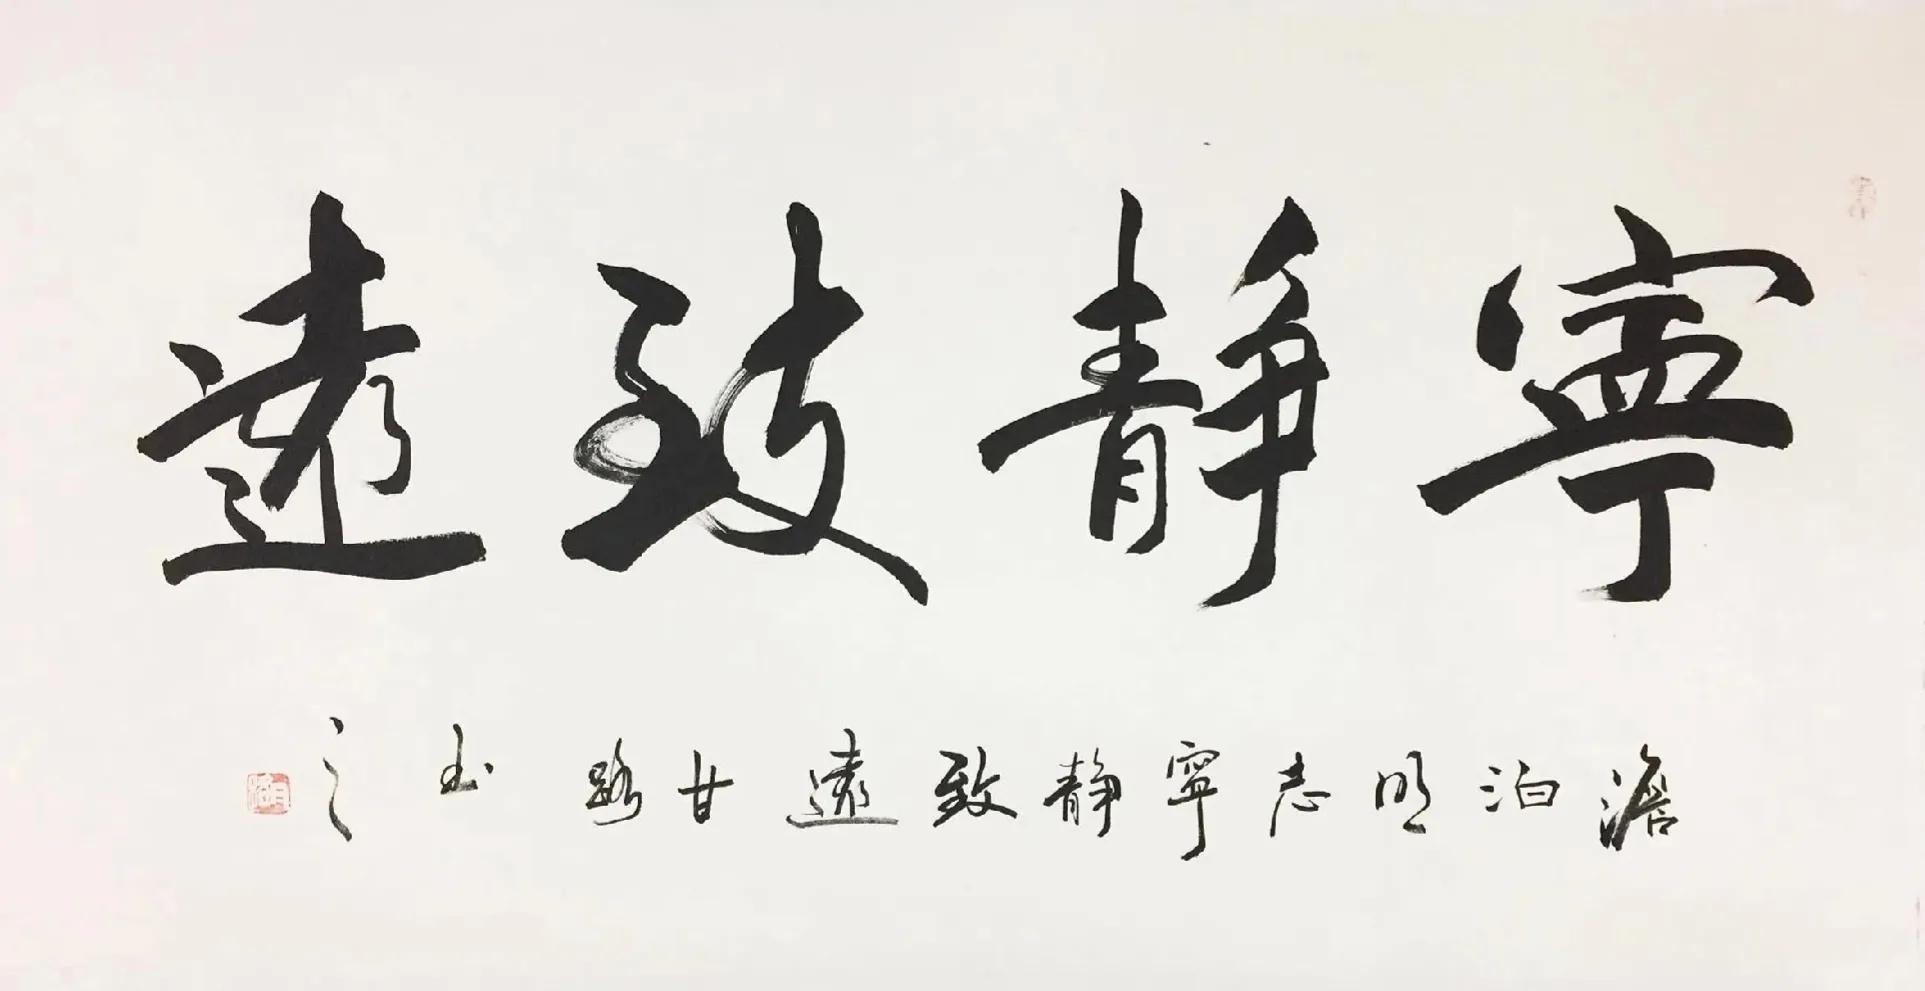 寧靜致遠
澹泊明志寧靜致遠甘路書之